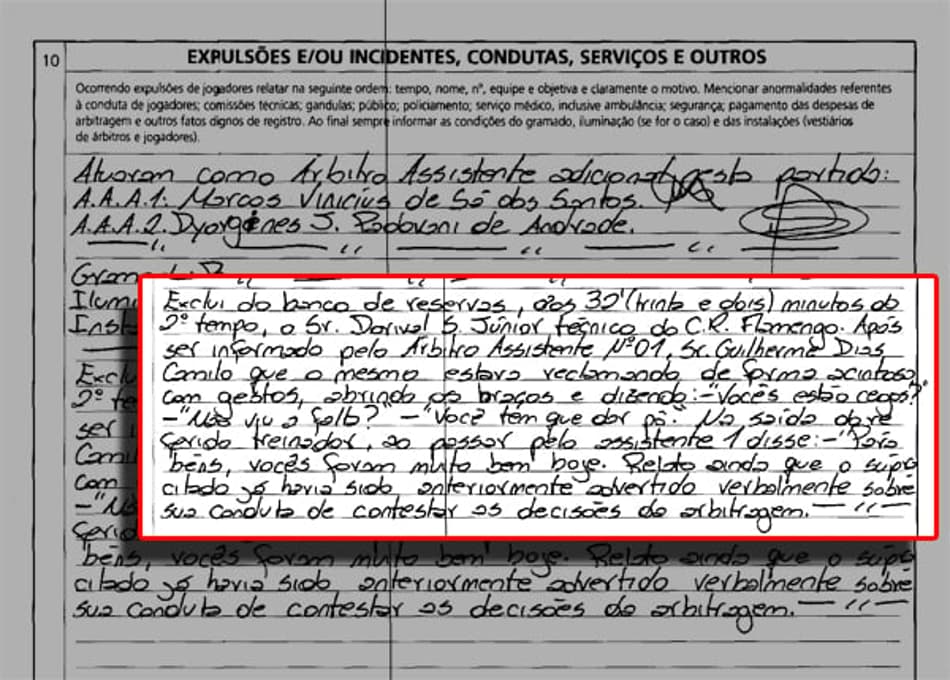 10
EXPULSÕES E/OU INCIDENTES, CONDUTAS, SERVIÇOS E OUTROS
Ocorrendo expulsões de jogadores relatar na seguinte ordem: tempo, nome, nº, equipe e objetiva e claramente o motivo. Mencionar anormalidades referentes
à conduta de jogadores; comissões técnicas; gandulas; público; policiamento; serviço médico, inclusive ambulância; segurança; pagamento das despesas de
arbitragem e outros fatos dignos de registro. Ao final sempre informar as condições do gramado, iluminação (se for o caso) e das instalações (vestiários
de árbitros e jogadores).
Atuaram como Árbitro Assistente adicional nesta partida:
A.A.A.1: Marcos Vinícius de Sá dos Santos.
A.A.A.2. Dyorgines J. Padovani de Andrade.
Gram
Ilumi
Inst
Excl
2º te
ser i
Cami
com
- "Nã
ferid
Exclui do banco de reservas, aos 32' (trinta e dois) minutos do
2º tempo, o Sr. Dorival S. Júnior técnico do C.R. Flamengo. Após
ser informado pelo Árbitro Assistente Nº01, Sr. Guilherme Dias
Camilo que o mesmo estava reclamando de forma acintosa
com gestos, abrindo os braços e dizendo: - "Vocês estão cegos?"
- "Não viu a falta?" - "Você têm que dar pô". Na saída do re
ferido treinador, ao passar pelo assistente 1 disse: - "Para
béns, vocês foram muito bem" hoje. Relato ainda que o supra
citado já havia sido anteriormente advertido verbalmente sobre
sua conduta de contestar as decisões da arbitragem.
béns, vocês foram muito bem" hoje. Relato ainda que o supra
citado já havia sido anteriormente advertido verbalmente sobre
sua conduta de contestar as decisões da arbitragem.